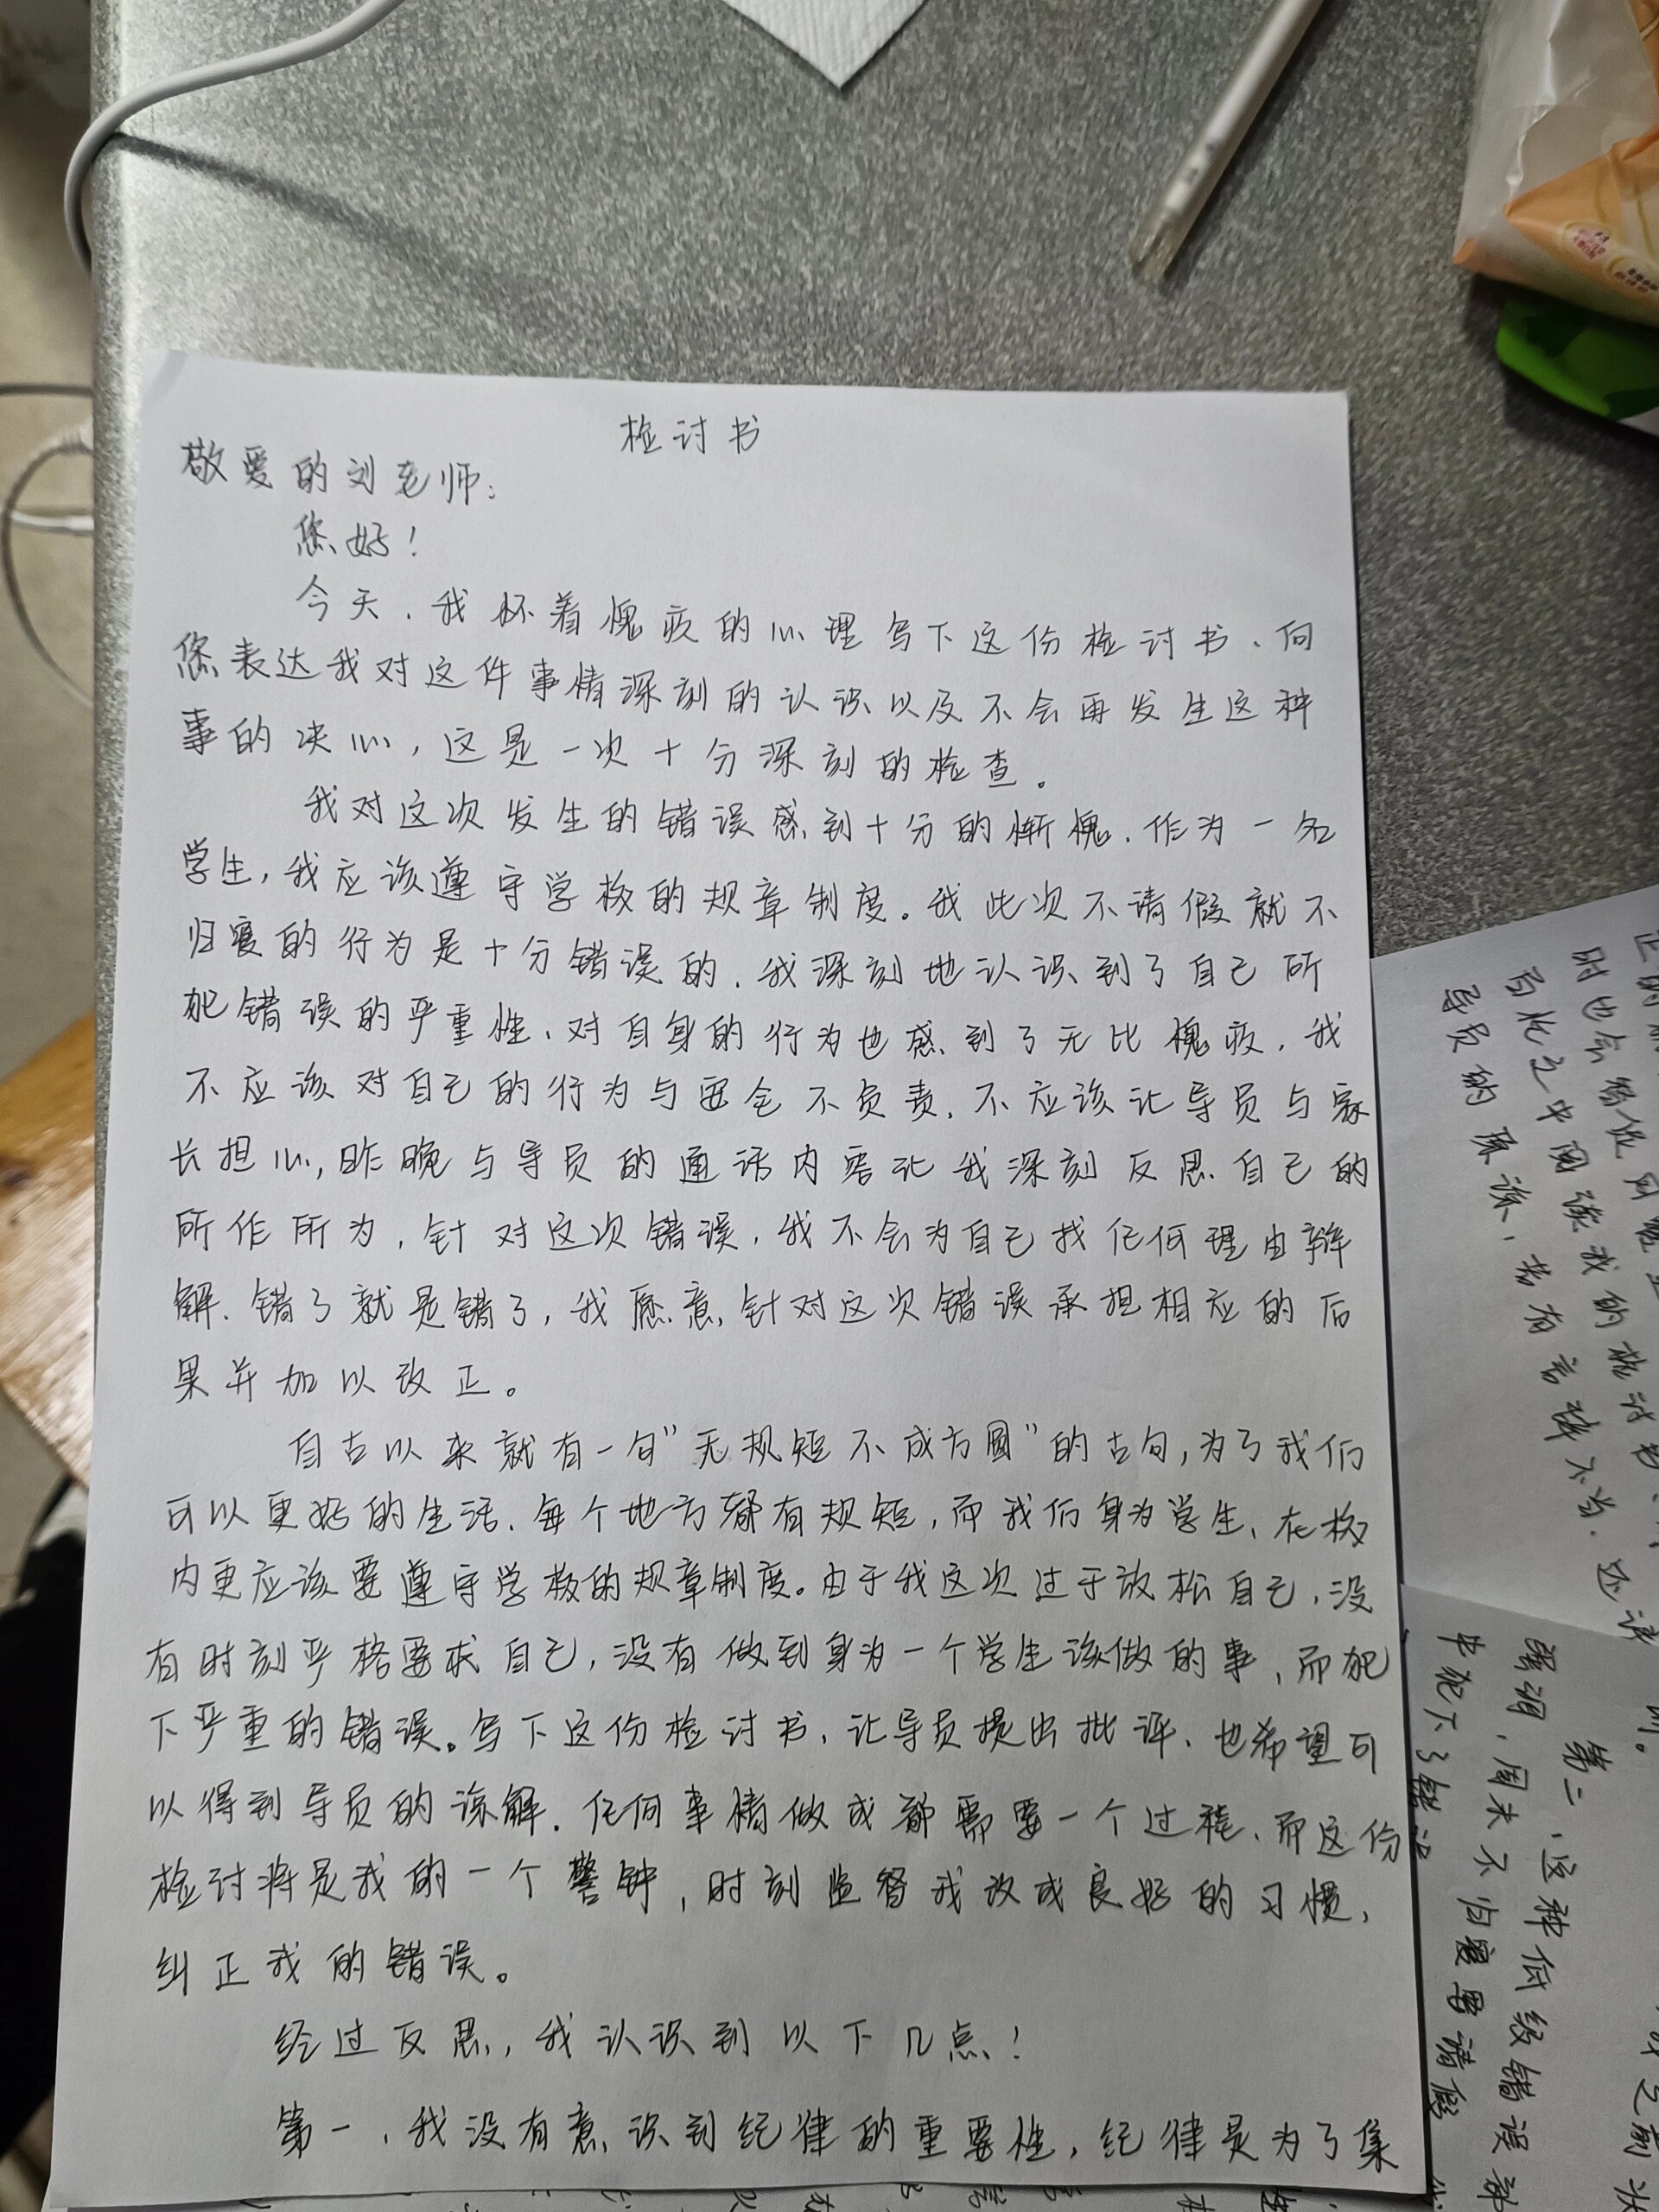 检讨书
敬爱的刘老师：
您好！
今天，我怀着愧疚的心理写下这份检讨书、向
您表达我对这件事情深刻的认识以及不会再发生这种
事的决心，这是一次十分深刻的检查。
我对这次发生的错误感到十分的惭愧，作为一名
学生，我应该遵守学校的规章制度。我此次不请假就不
归寝的行为是十分错误的，我深刻地认识到了自己所
犯错误的严重性、对自身的行为也感到了无比愧疚，我
不应该对自己的行为与安全不负责，不应该让导员与家
长担心，昨晚与导员的通话内容让我深刻反思自己的
所作所为，针对这次错误，我不会为自己找任何理由辩
解、错了就是错了，我愿意针对这次错误承担相应的后
果并加以改正。
自古以来就有一句"无规矩不成方圆"的古句，为了我们
可以更好的生活、每个地方都有规矩，而我们身为学生、在校
内更应该要遵守学校的规章制度。由于我这次过于放松自己，没
有时刻严格要求自己，没有做到身为一个学生该做的事，而犯
下严重的错误。写下这份检讨书，让导员提出批评、也希望可
以得到导员的谅解。任何事情做成都需要一个过程、而这份
检讨将是我的一个警钟，时刻监督我改成良好的习惯，
纠正我的错误。
经过反思，我认识到以下几点！
第一，我没有意识到纪律的重要性，纪律是为了集
时也会督促
后北之中国谅我的检讨书
导员的原谅，若有言辞不当，还请
第二，这种低级错误部
署洞，周末不归寝早请假
中犯下了错误